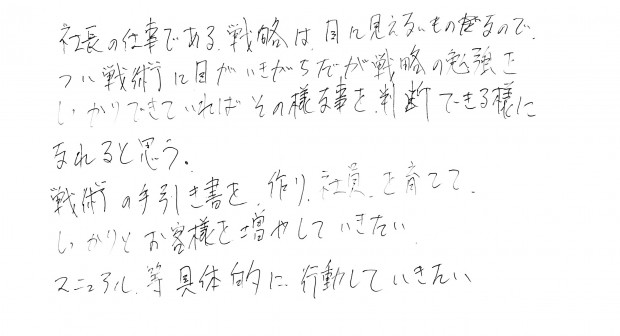 社長の仕事である戦略は、目に見えないものなので、
つい戦術に目がいきがちだが戦略の勉強を
しっかりできていればその様な事を判断できる様に
なれると思う。
戦術の手引き書を作り、社員を育てて、
しっかりとお客様を増やしていきたい
マニュアル等具体的に行動していきたい